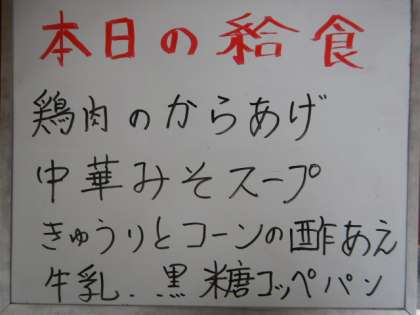 本日の給食
鶏肉のからあげ
中華みそスープ
きゅうりとコーンの酢あえ
牛乳.黒糖コッペパン